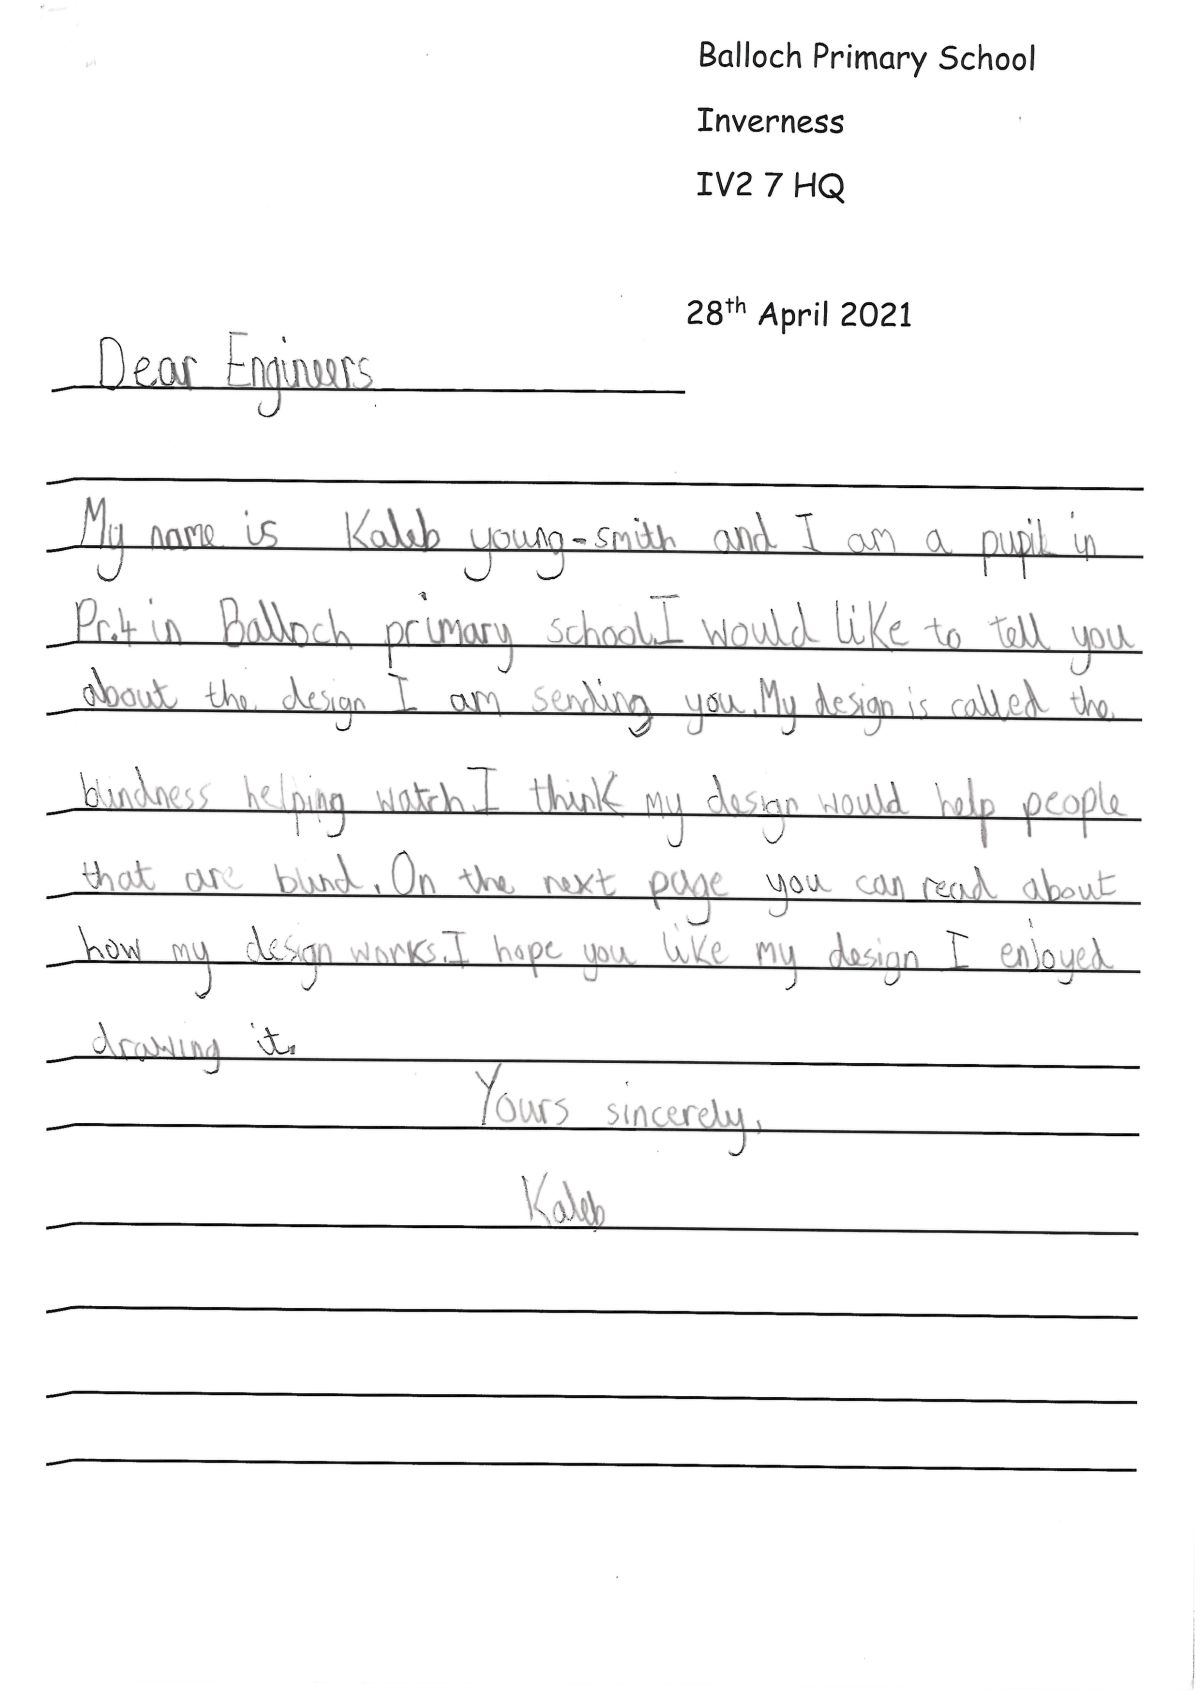 Balloch Primary School
Inverness
IV2 7 HQ
28th April 2021
Dear Engineers
My name is Kaleb young-smith and I am a pupil in
Pr.4 in Balloch primary school.I would like to tell you
about the design I am sending you.My design is called the
blindness helping watch.I think my design would help people
that are blind. On the next page you can read about
how my design works.I hope you like my design I enjoyed
drawing it.
Yours sincerely,
Kaleb